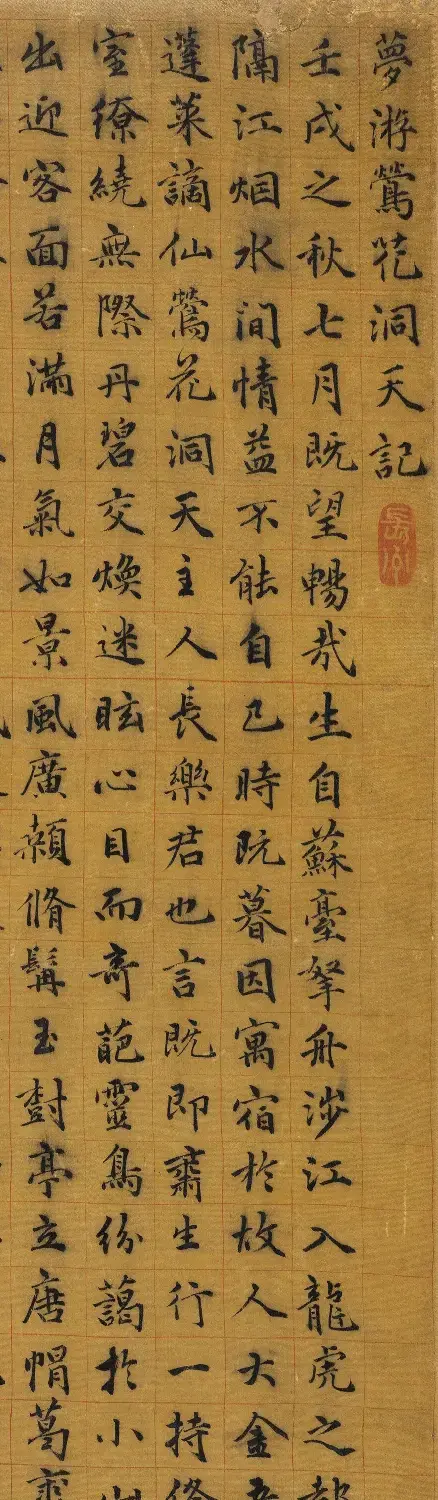 夢游鶯花洞天記
壬戌之秋七月既望暢哉生自蘇臺拏舟涉江入龍虎之
隔江烟水間情益不能自已時既暮因寓宿於故人大金
蓬萊謫仙鶯花洞天主人長樂君也言既即肅生行一持
室繚繞無際丹碧交煥迷眩心目而奇葩靈鳥紛藹於小
出迎客面若滿月氣如景風廣顙脩髯玉樹亭立唐帽葛